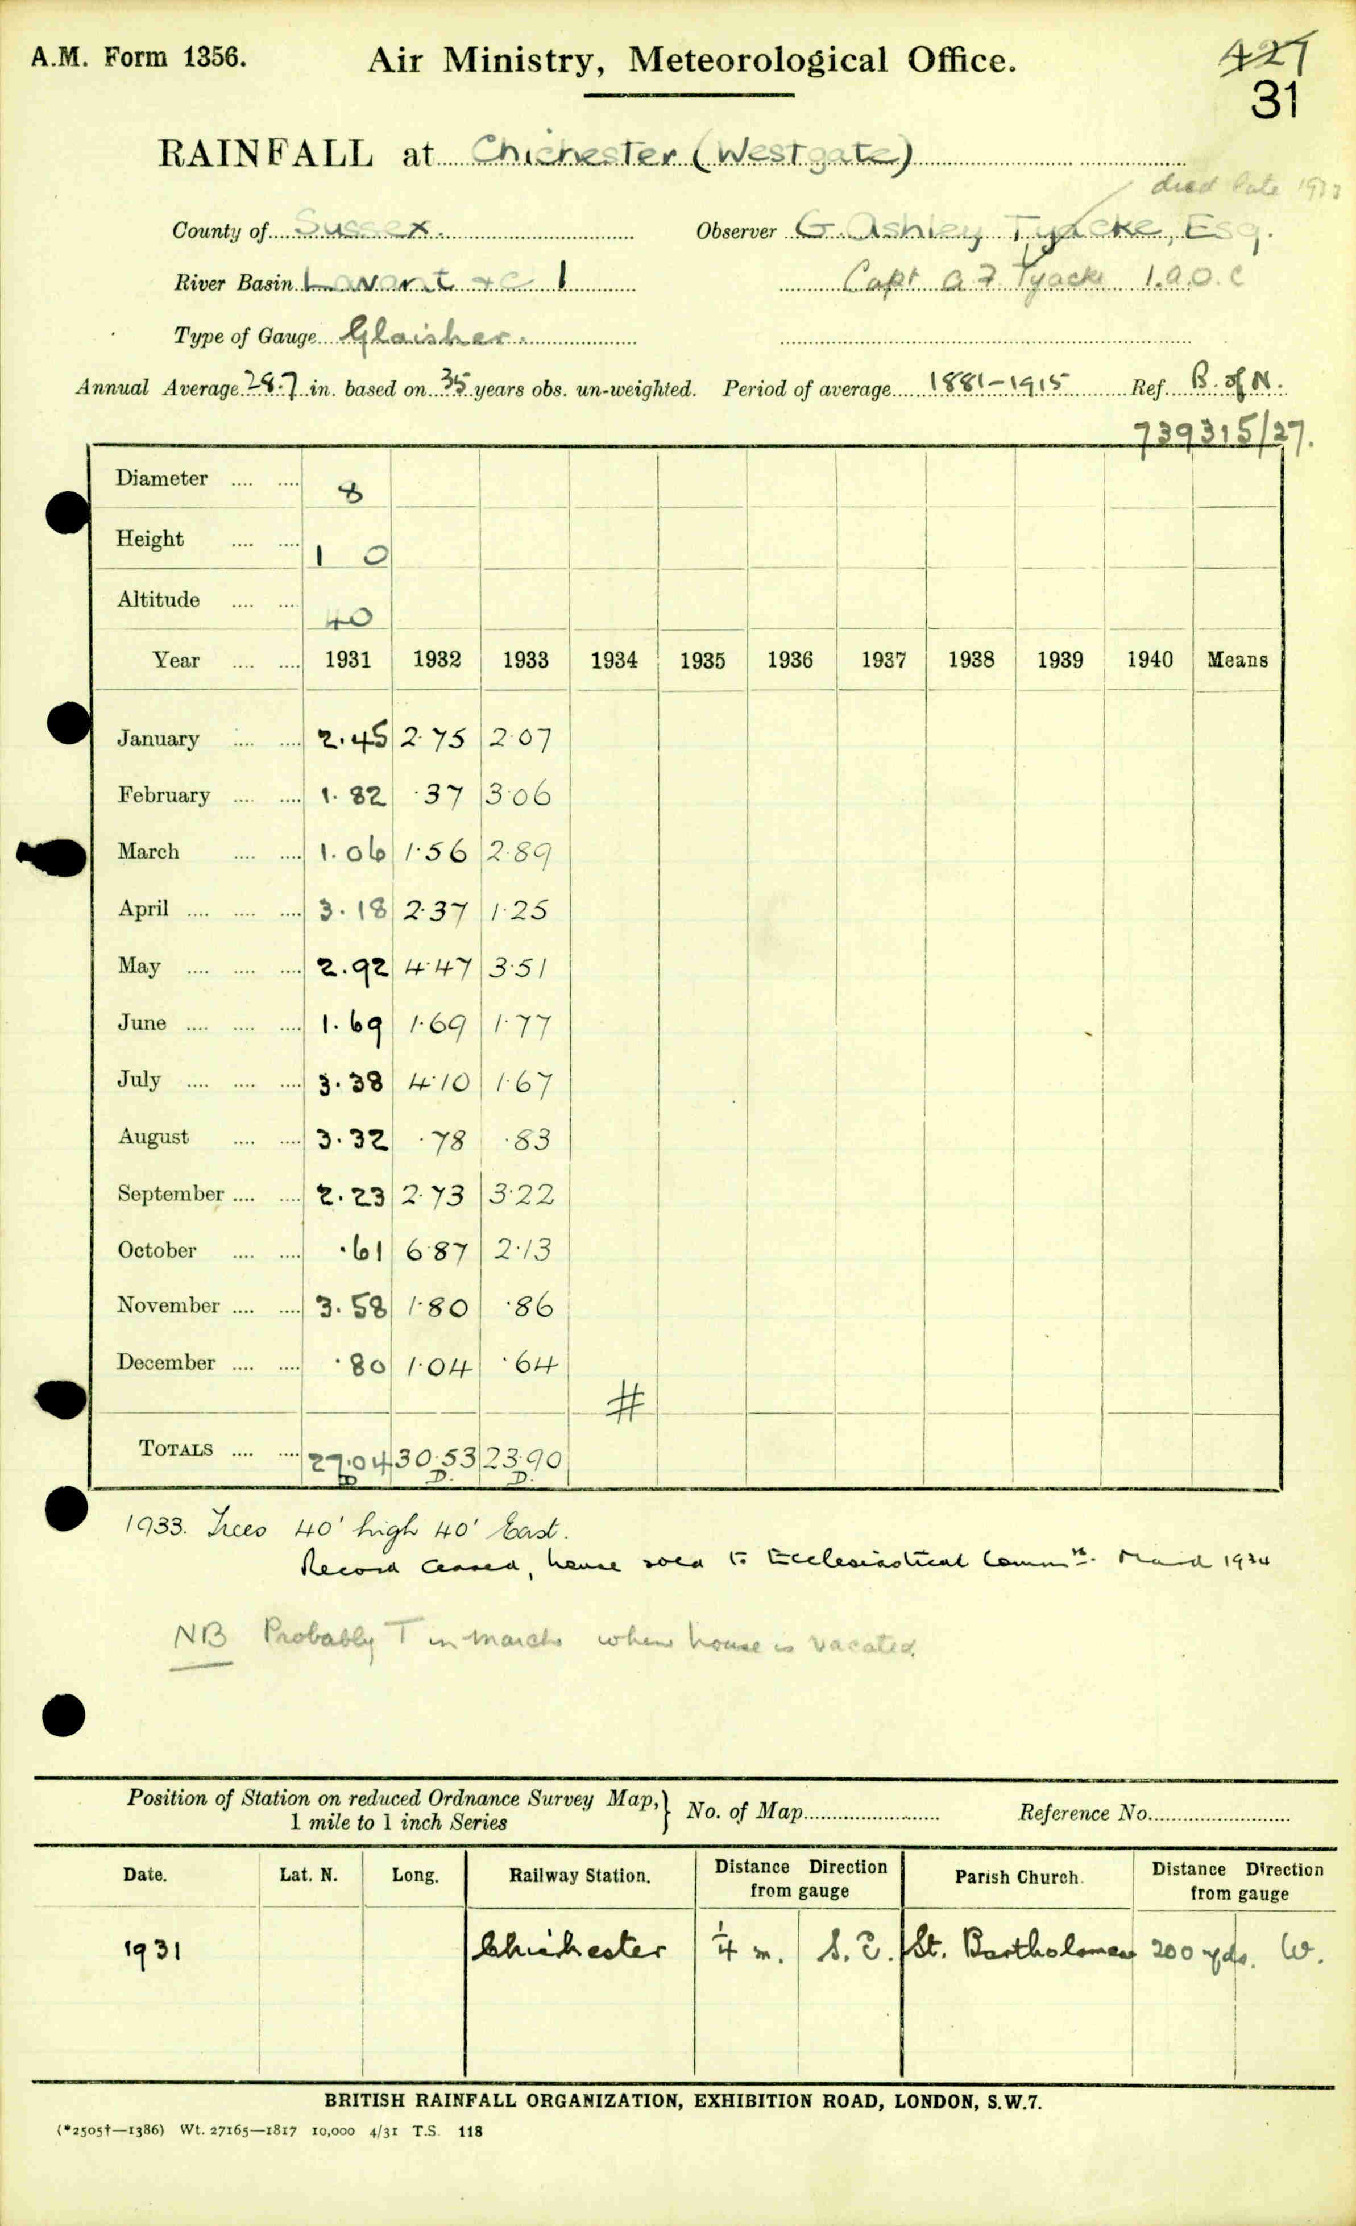 A.M. Form 1356.
Air Ministry, Meteorological Office.
427
31
RAINFALL at Chichester (Westgate)
died late 1933
County of Sussex.
Observer G. Ashley Tyacke, Esq.
River Basin Lavant &c 1
Capt A F Tyacke I.A.O.C
Type of Gauge Glaisher.
Annual Average 28.7 in. based on 35 years obs. un-weighted. Period of average 1881-1915 Ref. B. of N.
739315/27.
Diameter .... .... 8
Height .... .... 1 0
Altitude .... .... 40
Year .... .... 1931 1932 1933 1934 1935 1936 1937 1938 1939 1940 Means
January .... .... 2.45 2.75 2.07
February .... .... 1.82 .37 3.06
March .... .... 1.06 1.56 2.89
April .... .... .... 3.18 2.37 1.25
May .... .... .... 2.92 4.47 3.51
June .... .... .... 1.69 1.69 1.77
July .... .... .... 3.38 4.10 1.67
August .... .... 3.32 .78 .83
September .... .... 2.23 2.73 3.22
October .... .... .61 6.87 2.13
November .... .... 3.58 1.80 .86
December .... .... .80 1.04 .64
#
TOTALS .... .... 27.04 30.53 23.90
D. D.
1933. Trees 40' high 40' East.
Record ceased, house sold to Ecclesiastical Commrs. March 1934
NB Probably T in March when house is vacated
Position of Station on reduced Ordnance Survey Map,} No. of Map Reference No.
1 mile to 1 inch Series
Date. Lat. N. Long. Railway Station. Distance Direction from gauge Parish Church. Distance Direction from gauge
1931 Chichester 1/4 m. S.E. St. Bartholomew 200 yds. W.
BRITISH RAINFALL ORGANIZATION, EXHIBITION ROAD, LONDON, S.W.7.
(*2505†—1386) Wt. 27165—1817 10,000 4/31 T.S. 118